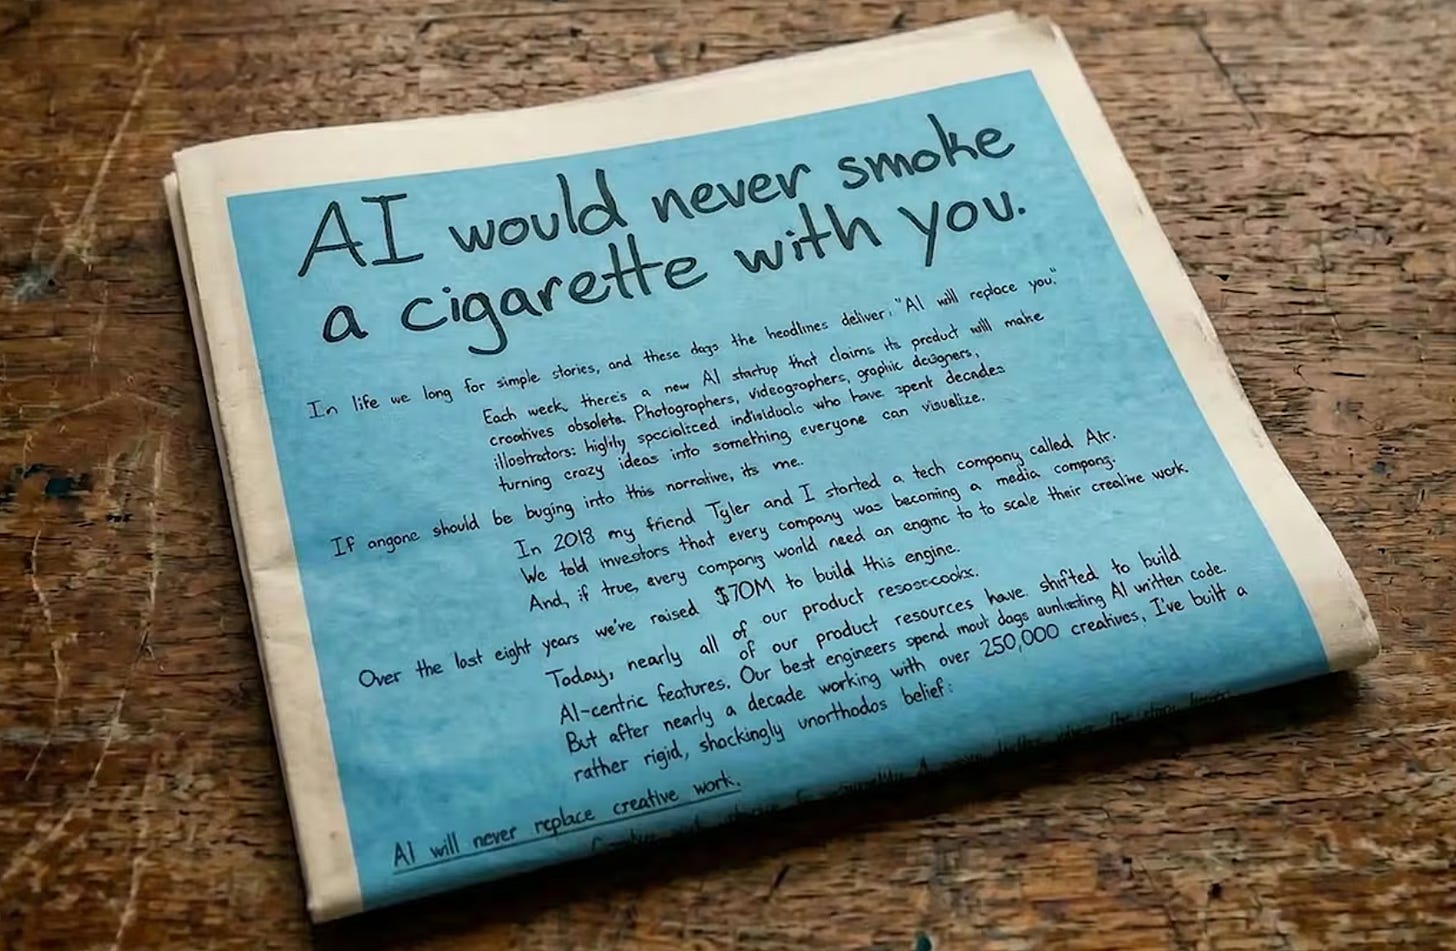 AI would never smoke
a cigarette with you.
In life we long for simple stories, and these days the headlines deliver: "AI will replace you."
Each week, there's a new AI startup that claims its product will make
creatives obsolete. Photographers, videographers, graphic designers,
illostrators: highly specialized individuals who have spent decades
turning crazy ideas into something everyone can visualize.
If angone should be buging into this narrative, its me..
In 2018 my friend Tyler and I started a tech company called Air.
We told investors that every company was becoming a media compang.
And, if true, every compang world need an engine to to scale their creative work.
Over the last eight years we've raised $70M to build this engine.
Today, nearly all of our product
of our product resources have shifted to build
AI-centric features. Our best engineers spend most dags AI written code.
But after nearly a decade working with over 250,000 creatives, I've built a
rather rigid, shockingly unorthodos belief:
AI will never replace creative work.